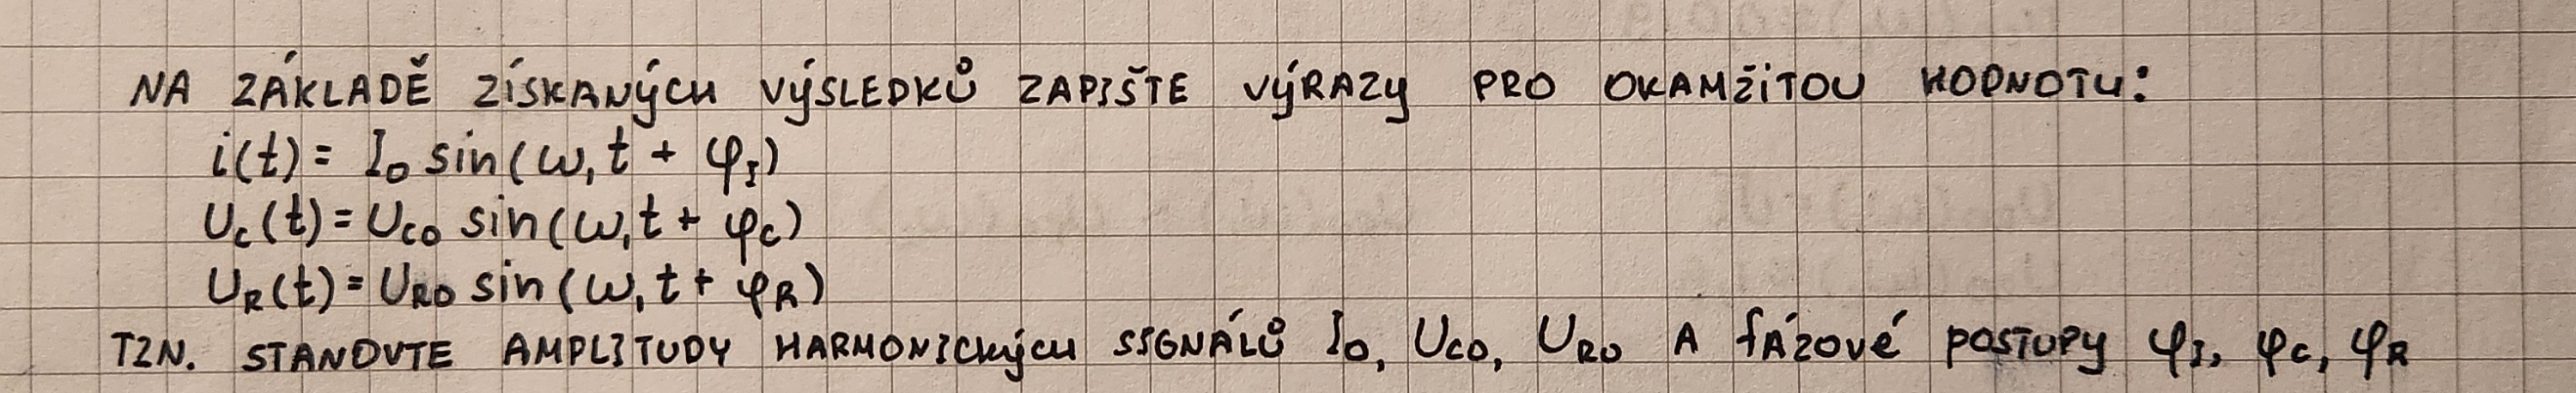 NA ZÁKLADĚ ZÍSKANÝCH VÝSLEDKŮ ZAPIŠTE VÝRAZY PRO OKAMŽITOU HODNOTU:
i(t) = I₀ sin(ω₁t + φ_I)
U_C(t) = U_C0 sin(ω₁t + φ_C)
U_R(t) = U_R0 sin(ω₁t + φ_R)
TZN. STANOVTE AMPLITUDY HARMONICKÝCH SIGNÁLŮ I₀, U_C0, U_R0 A FÁZOVÉ POSTUPY φ_I, φ_C, φ_R